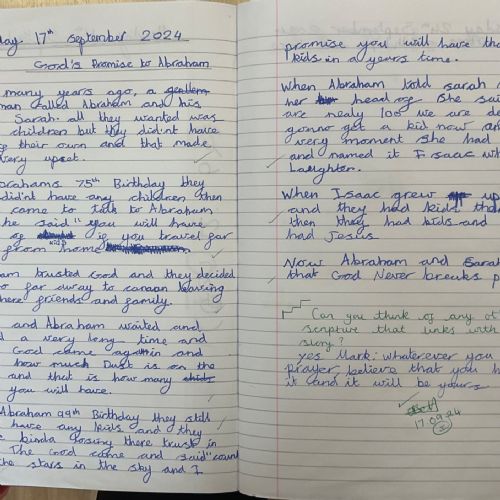 day 17th September 2024
God's Promise to Abraham
many years ago, a
man called Abraham and his
Sarah. all they wanted was
children but they did'nt have
their own and that made
very upset.
Abrahams 75th Birthday they
did'nt have any children then
come to talk to Abraham
he said "you will have
of kids if you travel far
from home
trusted God and they decided
far away to canaan leaving
there friends and family.
and Abraham waited and
a very long time and
God came again and
how much Dust is on the
and that is how many
you will have.
Abraham 99th Birthday they still
have any kids and they
kinda losing there trust in
The God came and said "count
the stars in the sky and I
promise you will have
kids in a years time.
When Abraham told sarah
her head of she
are nealy 100 we are
gonna get a kid now
very moment she had
and named it Isaac
Laughter.
When Isaac grew up
and they had kids
then they had kids and
had Jesus.
Now Abraham and
that God Never breaks
Can you think of any
scripture that links with
story?
yes Mark: whatever you
prayer, believe that you
it and it will be yours
17.09.24